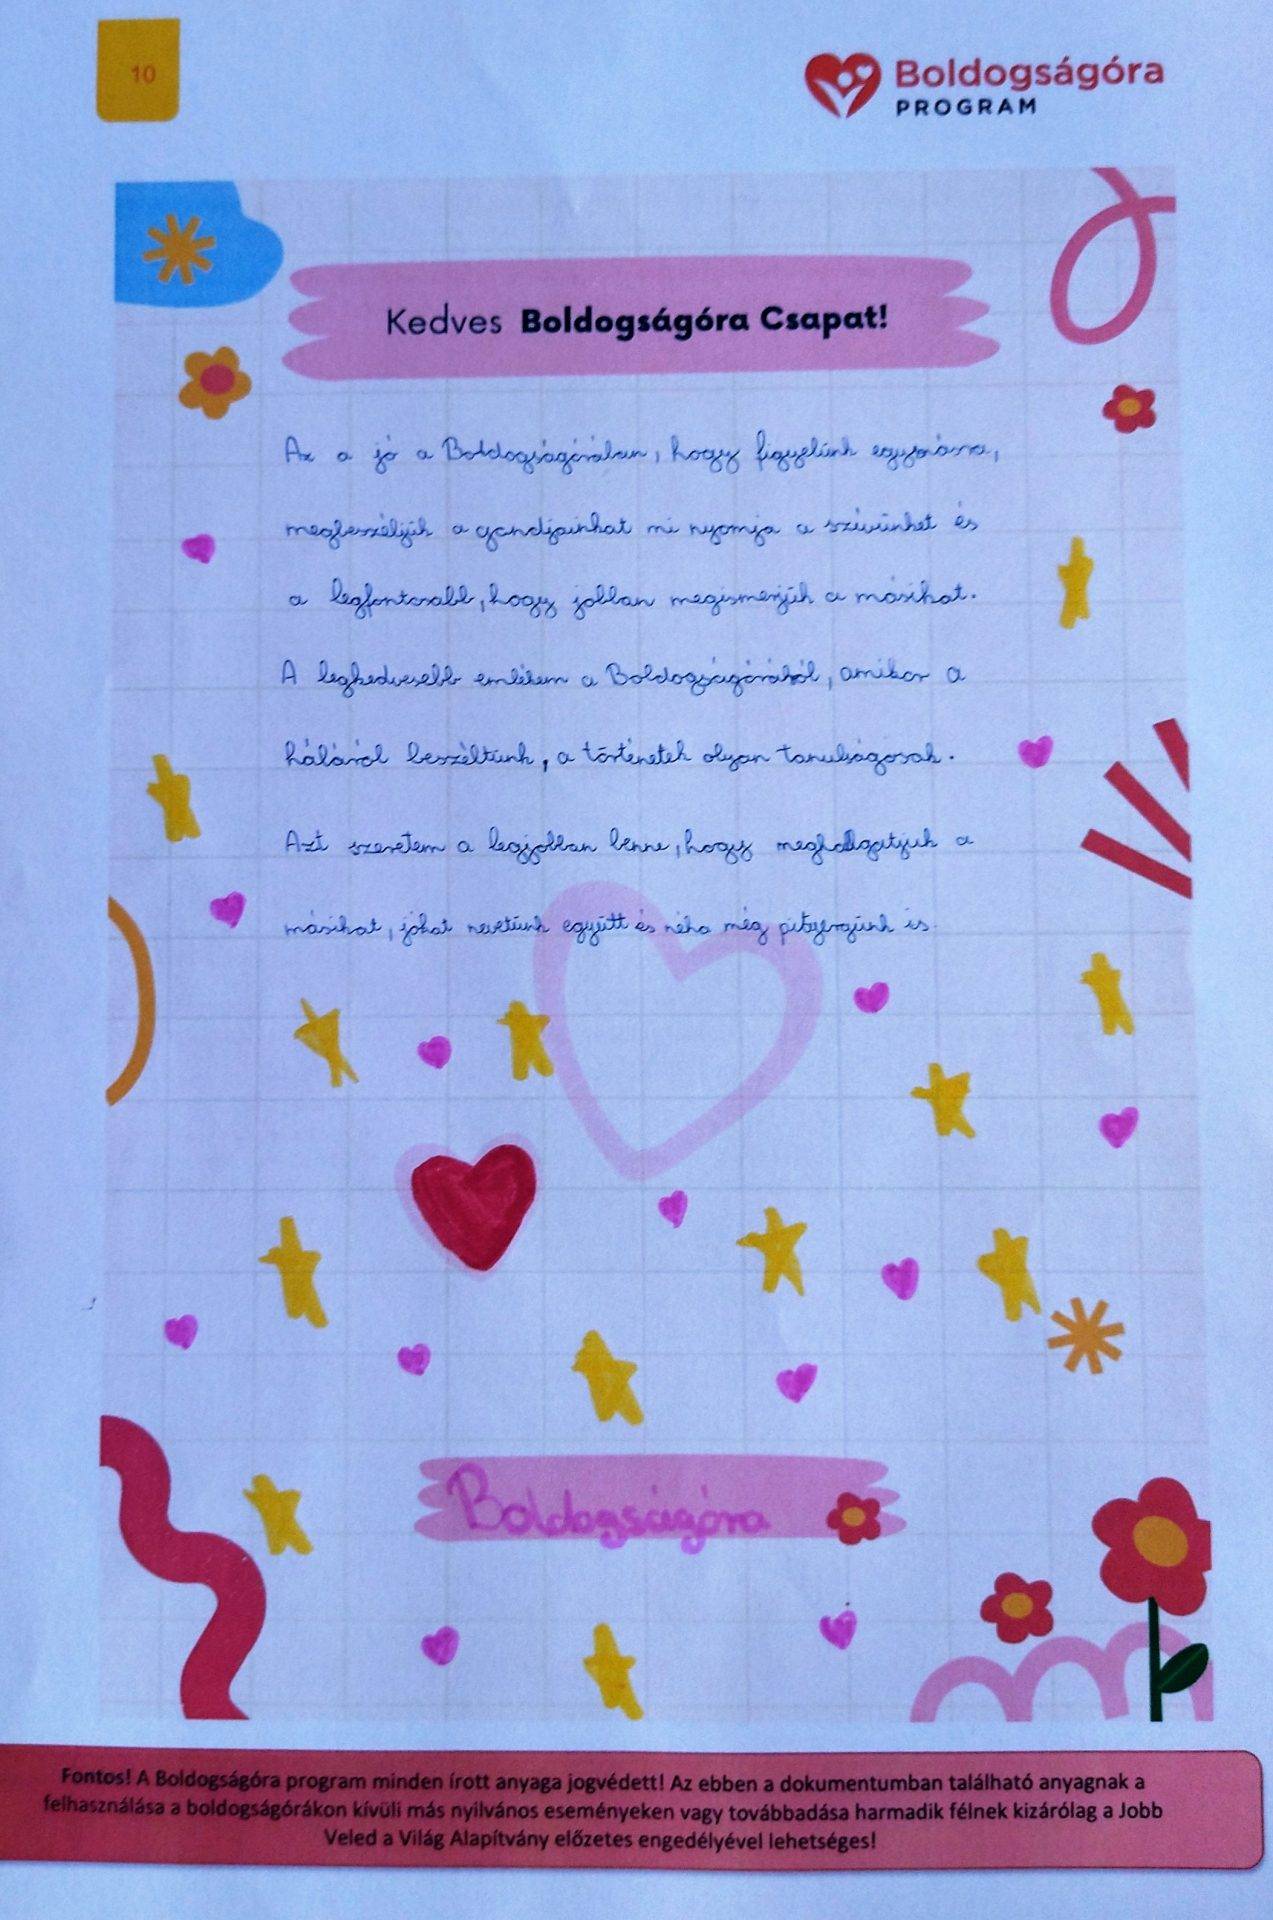 10
Boldogságóra
PROGRAM
Kedves Boldogságóra Csapat!
Az a jó a Boldogságórában, hogy figyelünk egymásra,
megbeszéljük a gondjainkat mi nyomja a szívünket és
a legfontosabb, hogy jobban megismerjük a másikat.
A legkedvesebb emlékem a Boldogságóráról, amikor a
háláról beszéltünk, a történetek olyan tanulságosak.
Azt szeretem a legjobban benne, hogy meghallgatjuk a
másikat, jókat nevetünk együtt és néha még pityergünk is.
Boldogságóra
Fontos! A Boldogságóra program minden írott anyaga jogvédett! Az ebben a dokumentumban található anyagnak a
felhasználása a boldogságórákon kívüli más nyilvános eseményeken vagy továbbadása harmadik félnek kizárólag a Jobb
Veled a Világ Alapítvány előzetes engedélyével lehetséges!